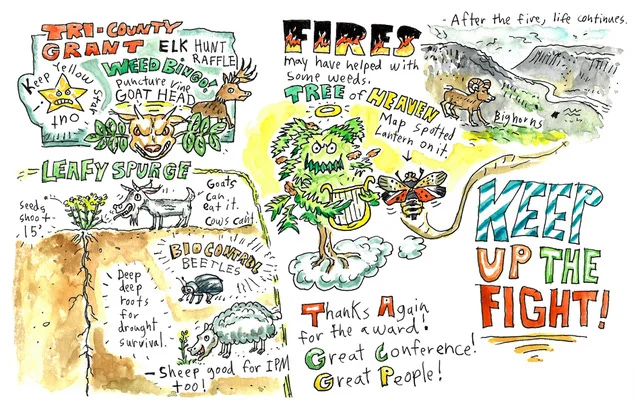 TRI-COUNTY
GRANT
ELK HUNT
RAFFLE
Keep Yellow
Star
out
WEED BINGO
Puncture vine
GOAT HEAD
LEAFY SPURGE
seeds
shoot
15'
Goats
can
eat it.
Cows can't
BIOCONTROL
BEETLES
Deep
deep
roots
for
drought
survival.
- Sheep good for IPM
too!
FIRES
may have helped with
some weeds.
TREE of HEAVEN
Map spotted
Lantern on it.
- After the fire, life continues.
Bighorns
KEEP
UP THE
FIGHT!
Thanks Again
for the award!
Great Conference!
Great People!